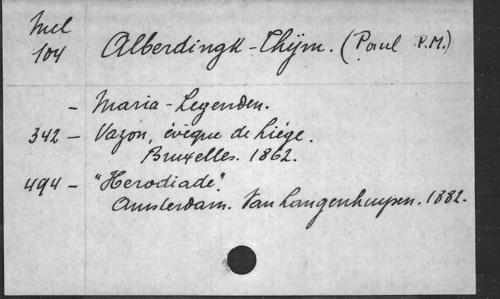 Mel
104 Alberdingk-Thijm. (Paul P.M.)
- Maria-Legenden.
342 - Vazon, évèque de Liége.
Bruxelles. 1862.
494 - "Herodiade".
Amsterdam. Van Langenhuysen. 1882.